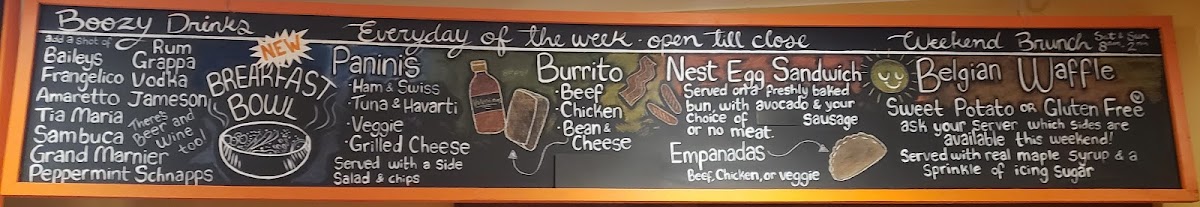 Boozy Drinks
add a shot of
Baileys
Frangelico
Amaretto
Tia Maria
Sambuca
Grand Marnier
Peppermint Schnapps
Rum
Grappa
Vodka
Jameson
There's
Beer and
Wine
too!
NEW
BREAKFAST
BOWL
Everyday of the week - open till close
Paninis
· Ham & Swiss
· Tuna & Havarti
· Veggie
· Grilled Cheese
Served with a side
Salad & chips
Burrito
· Beef
· Chicken
· Bean &
Cheese
Nest Egg Sandwich
Served on a freshly baked
bun, with avocado & your
choice of Sausage
or no meat.
Empanadas
Beef, Chicken, or veggie
Weekend Brunch Sat & Sun
8am-2pm
Belgian Waffle
Sweet Potato OR Gluten Free
ask your server which sides are
available this weekend!
Served with real maple syrup & a
Sprinkle of icing sugar